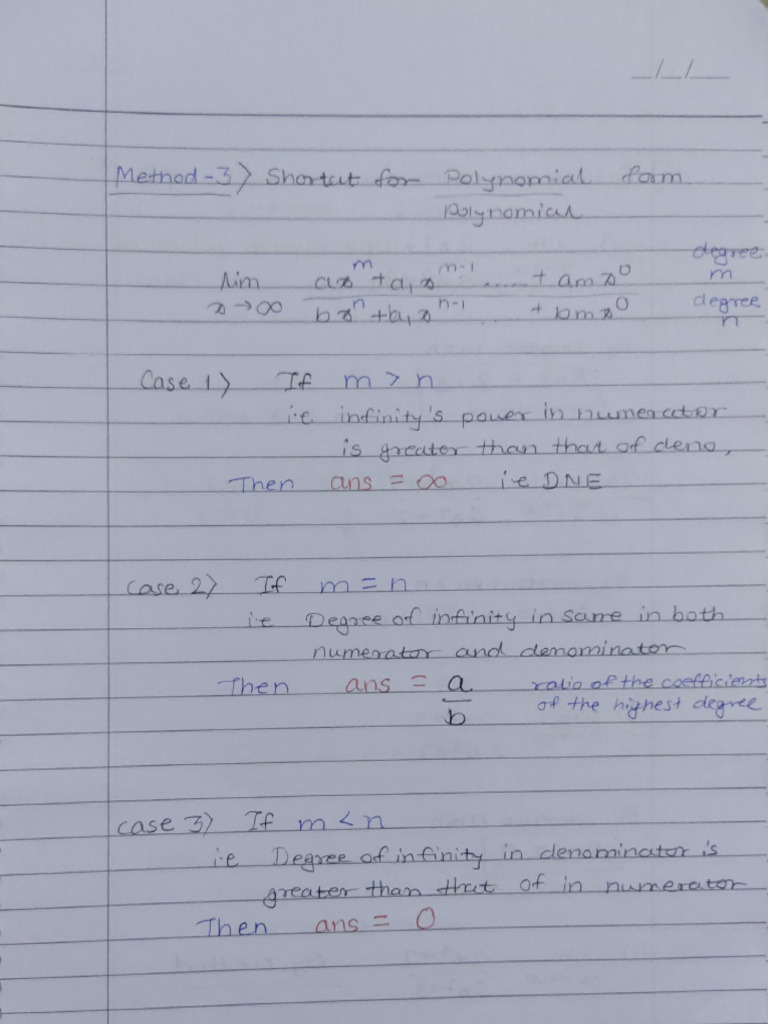 _/_/__
Method-3> Shortcut for Polynomial form
Polynomial
lim x→∞ (ax^m + a₁x^(m-1) ..... + amx^0) / (bx^n + b₁x^(n-1) ..... + bmx^0) degree m degree n
Case 1> If m > n
i.e. infinity's power in numerator
is greater than that of deno,
Then ans = ∞ i.e DNE
Case 2> If m = n
i.e Degree of infinity in same in both
numerator and denominator
Then ans = a/b ratio of the coefficients
of the highest degree
Case 3> If m < n
i.e Degree of infinity in denominator is
greater than that of in numerator
Then ans = 0